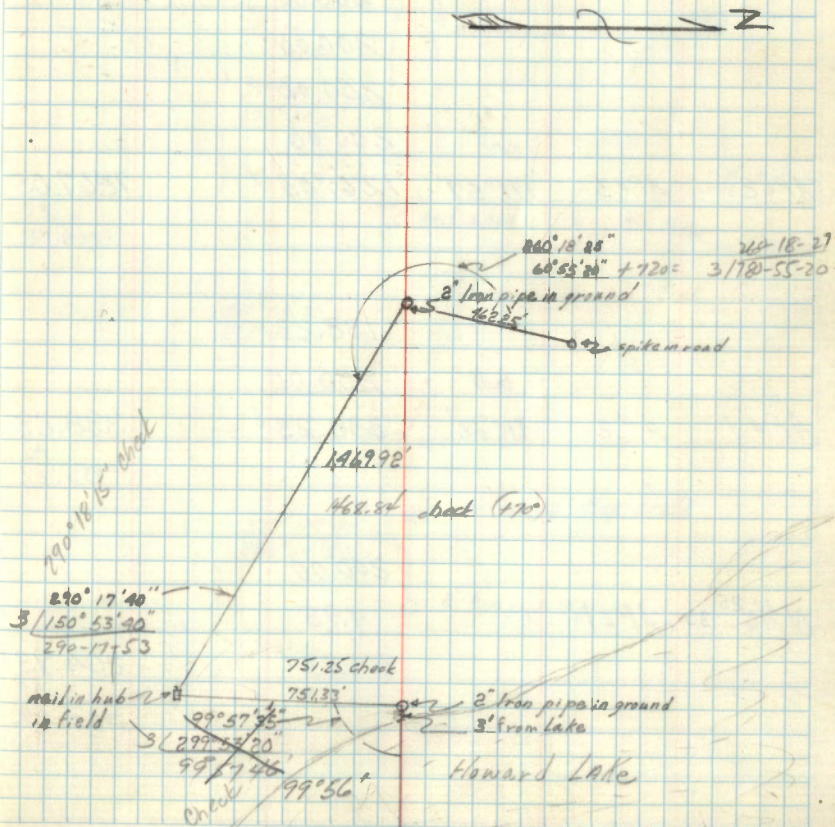 260° 18' 25"
260-18-27
60° 55' 20" + 720 = 3/780-55-20
2" Iron pipe in ground
462.25'
spike in road
1469.92'
1468.84' check (+70°)
290° 18' 15" check
290° 17' 40"
3/150° 53' 40"
290-17-53
751.25 check
nail in hub
in field
751.33'
2" Iron pipe in ground
3' from Lake
99° 57' 35"
3/299° 53' 20"
99° 57' 46"
99° 56'
Howard LAKE
Check